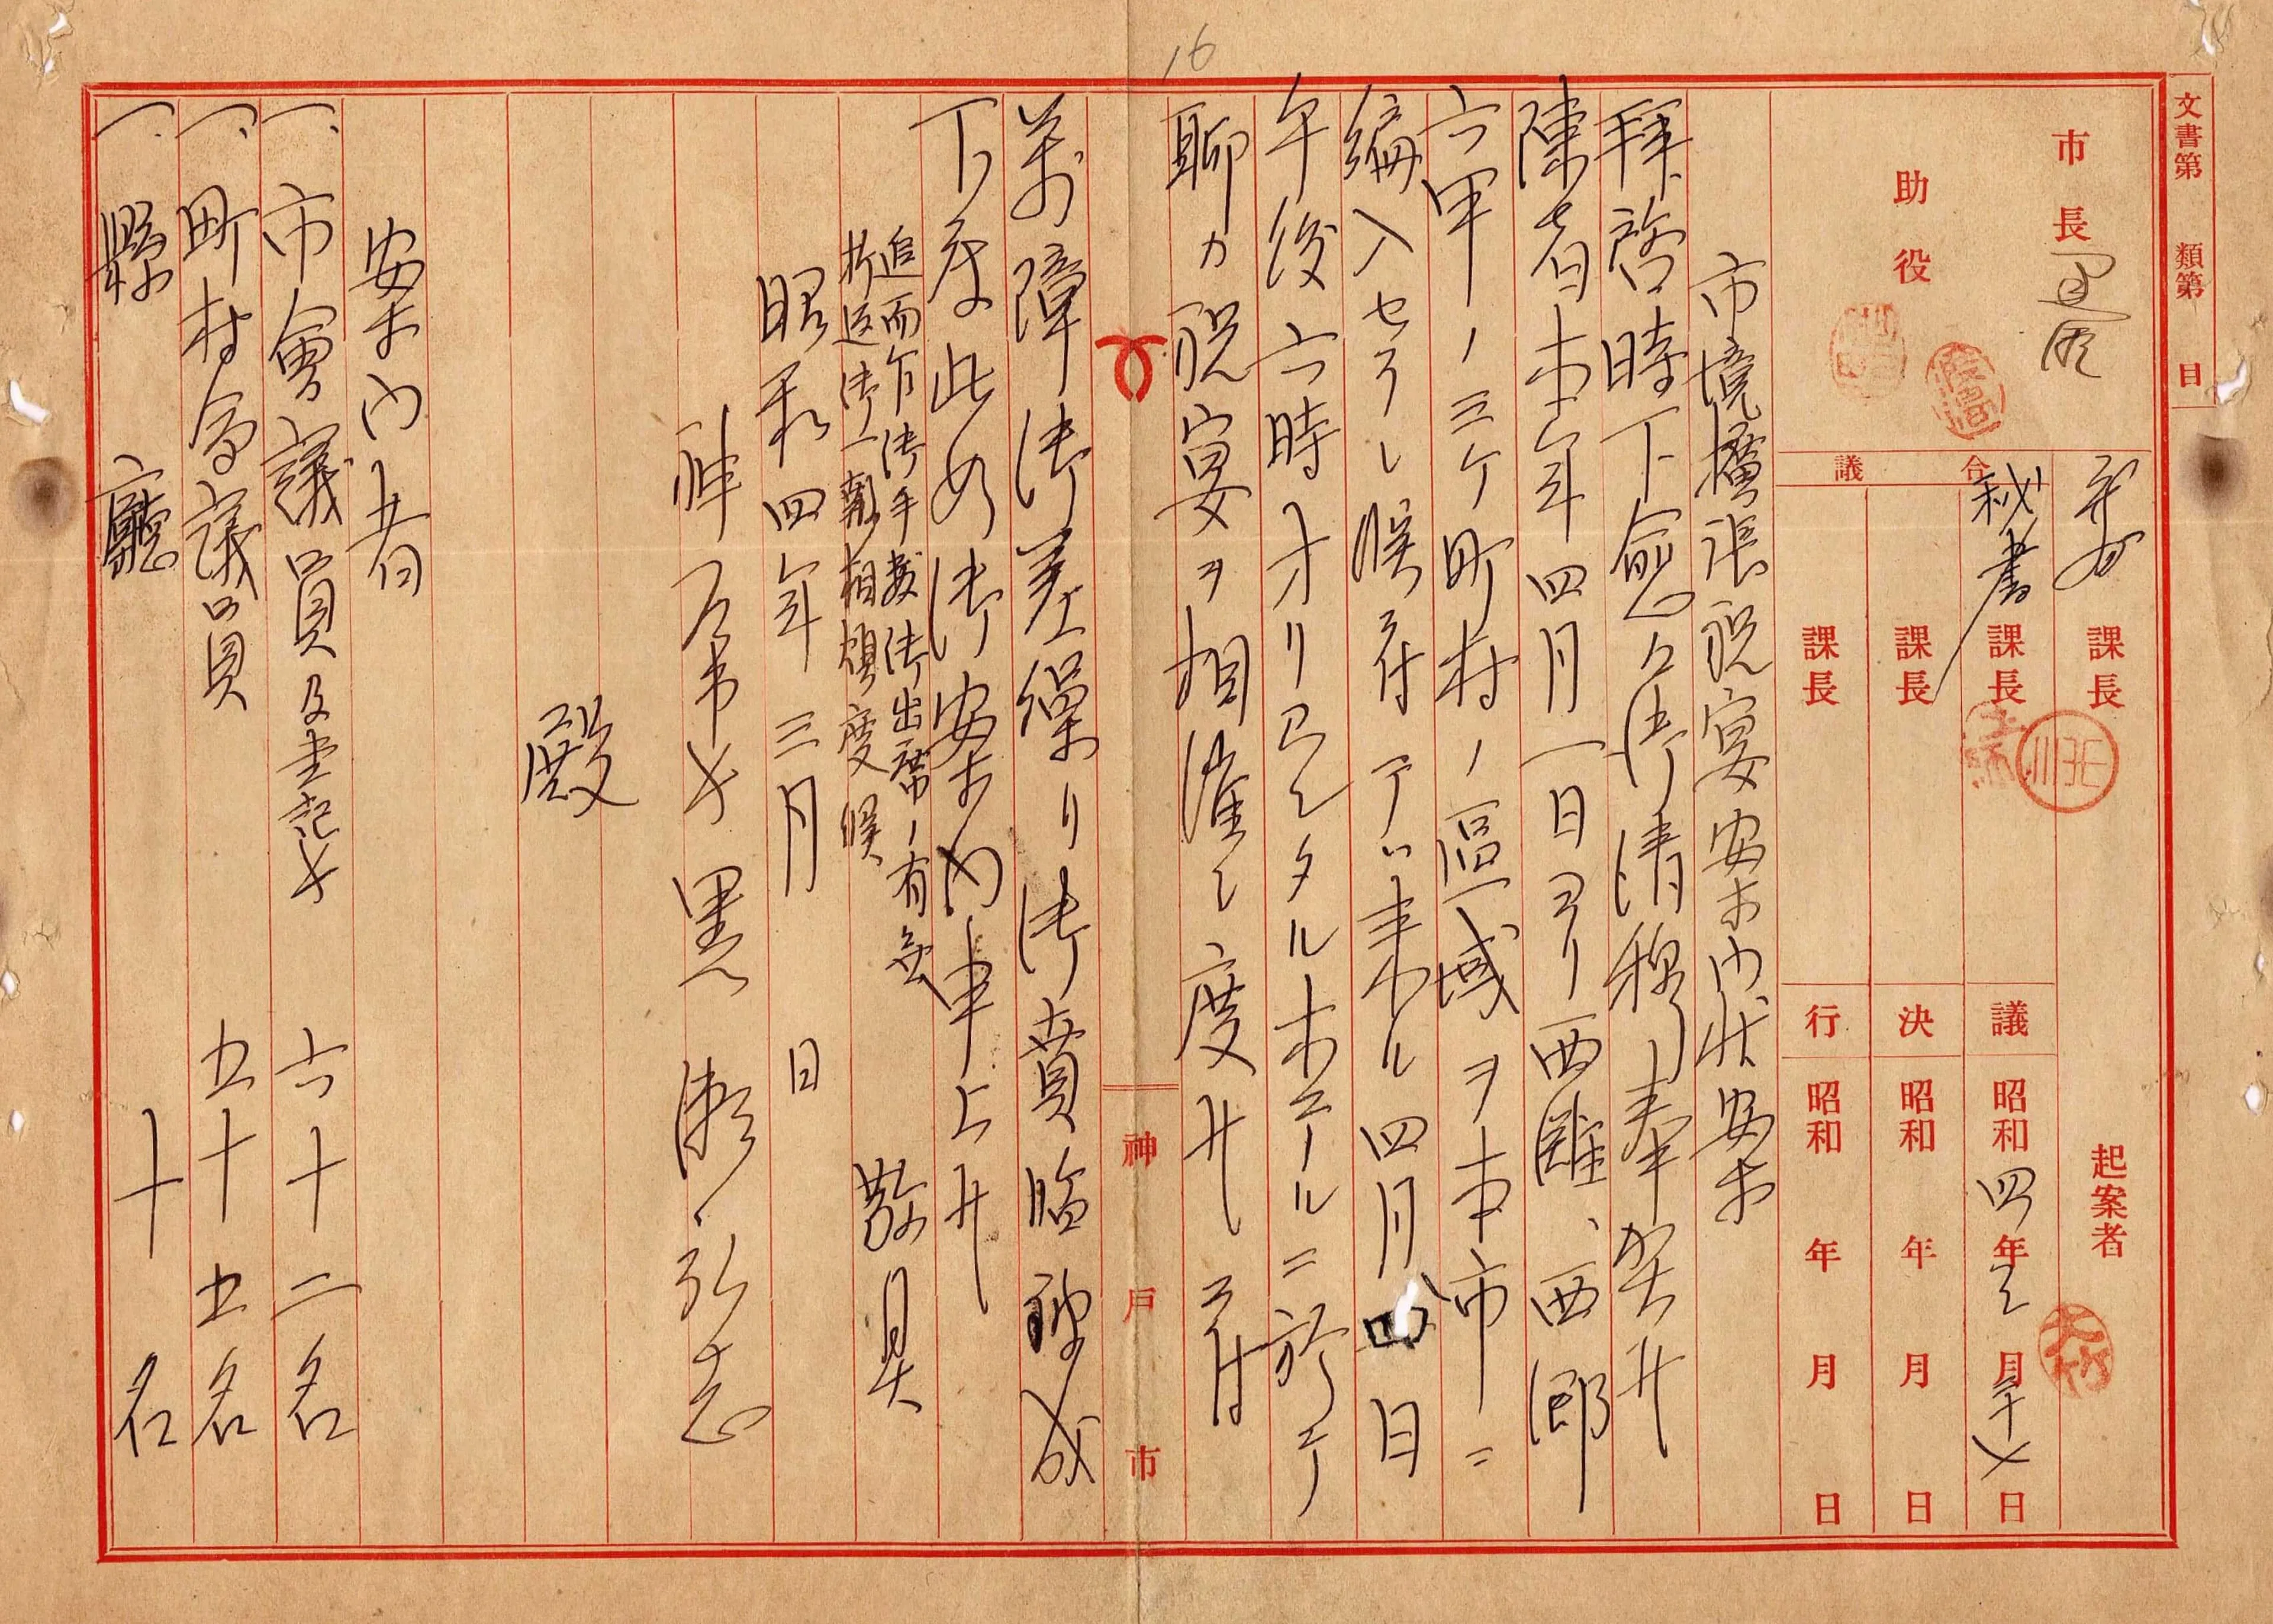 16
文書第 類第 目
市長
助役
合議
庶務課長
秘書課長
課長
課長
起案者
議 昭和四年三月二十七日
決 昭和 年 月 日
行 昭和 年 月 日
市境擴張祝宴案内状案
拜啓時下愈々御清穆奉賀候
陳者本年四月一日ヨリ西灘、西郷
六甲ノ三ケ町村ノ區域ヲ本市ニ
編入セラレ候ニ付テハ来ル四月四日
午後六時オリエンタルホテルニ於テ
聊カ祝宴ヲ相催し度候ニ付
神戸市
萬障御差繰リ御賁臨被成
下度此段御案内申上候
敬具
追而乍御手数御出席ノ有無
折返御一報相煩度候
昭和四年三月 日
神戸市長 黒瀬弘志
殿
案内者
一、市會議員及書記長 六十二名
一、町村会議員 五十五名
一、縣廳 十名